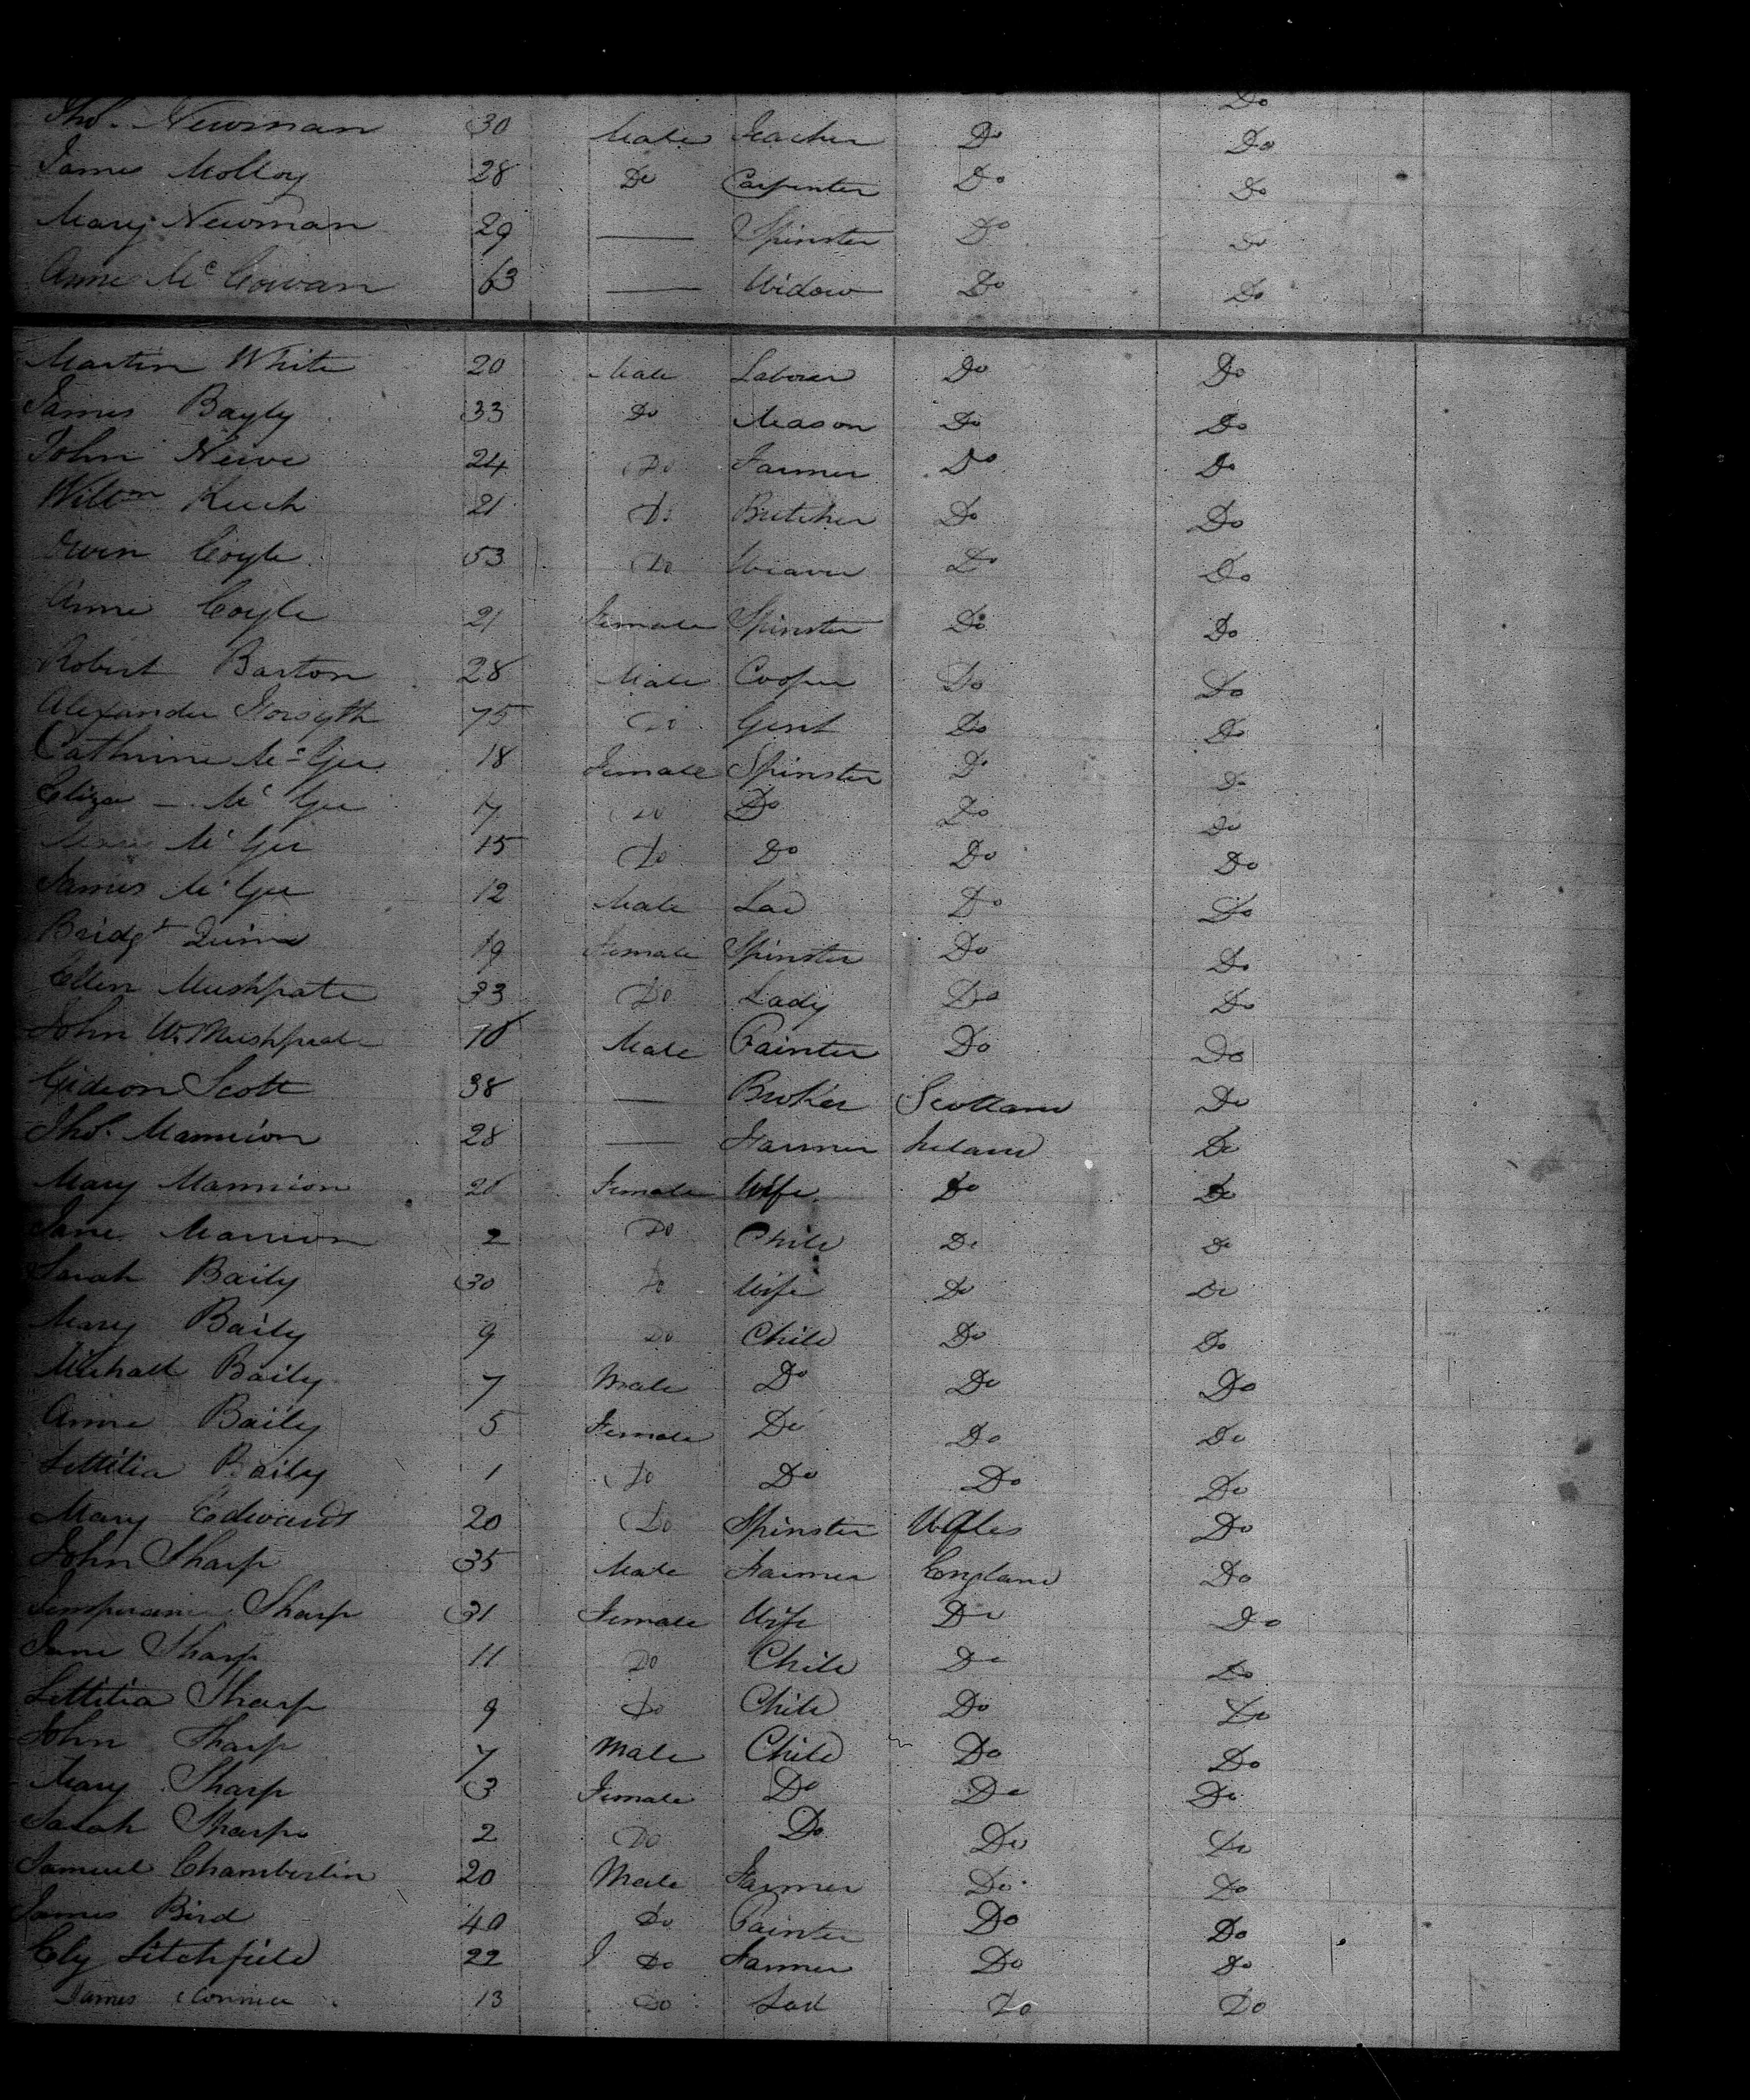 Do
Thos. Newman 30 Male Teacher Do Do
James Molloy 28 Do Carpenter Do Do
Mary Newman 29 — Spinster Do Do
Anne McCowan 63 — Widow Do Do
Martin White 20 Male Laborer Do Do
James Bayly 33 Do Mason Do Do
John 24 Do Farmer Do Do
Willm 21 Do Butcher Do Do
Owen Coyle 53 Do Weaver Do Do
Anne Coyle 21 Female Spinster Do Do
Robert Barton 28 Male Cooper Do Do
Alexander Forsyth 75 Do Gent Do Do
Cathrine McGee 18 Female Spinster Do Do
Eliza — McGee 17 Do Do Do Do
McGee 15 Do Do Do Do
James McGee 12 Male Lad Do Do
Bridgt Quinn 19 Female Spinster Do Do
Ellen Mushpate 33 Do Lady Do Do
John W. Male Painter Do Do
Gideon Scott 38 — Broker Scotland Do
Thos. Mannion 28 — Farmer Ireland Do
Mary Mannion Female Wife Do Do
Jane Mannion 2 Do Child Do Do
Sarah Baily 30 Do Wife Do Do
Mary Baily 9 Do Child Do Do
Michall Baily 7 Male Do Do Do
Anne Baily 5 Female Do Do Do
Lettitia Baily 1 Do Do Do Do
Mary Edwards 20 Do Spinster Wales Do
John Sharp 35 Male Farmer England Do
Temperance Sharp 31 Female Wife Do Do
Jane Sharp 11 Do Child Do Do
Lettitia Sharp 9 Do Child Do Do
John Sharp 7 Male Child Do Do
Mary Sharp 3 Female Do Do Do
Sarah Sharp 2 Do Do Do Do
Samuel Chamberlin 20 Male Farmer Do Do
James Bird 40 Do Painter Do Do
Ely Litchfield 22 Do Farmer Do Do
James 13 Do Lad Do Do